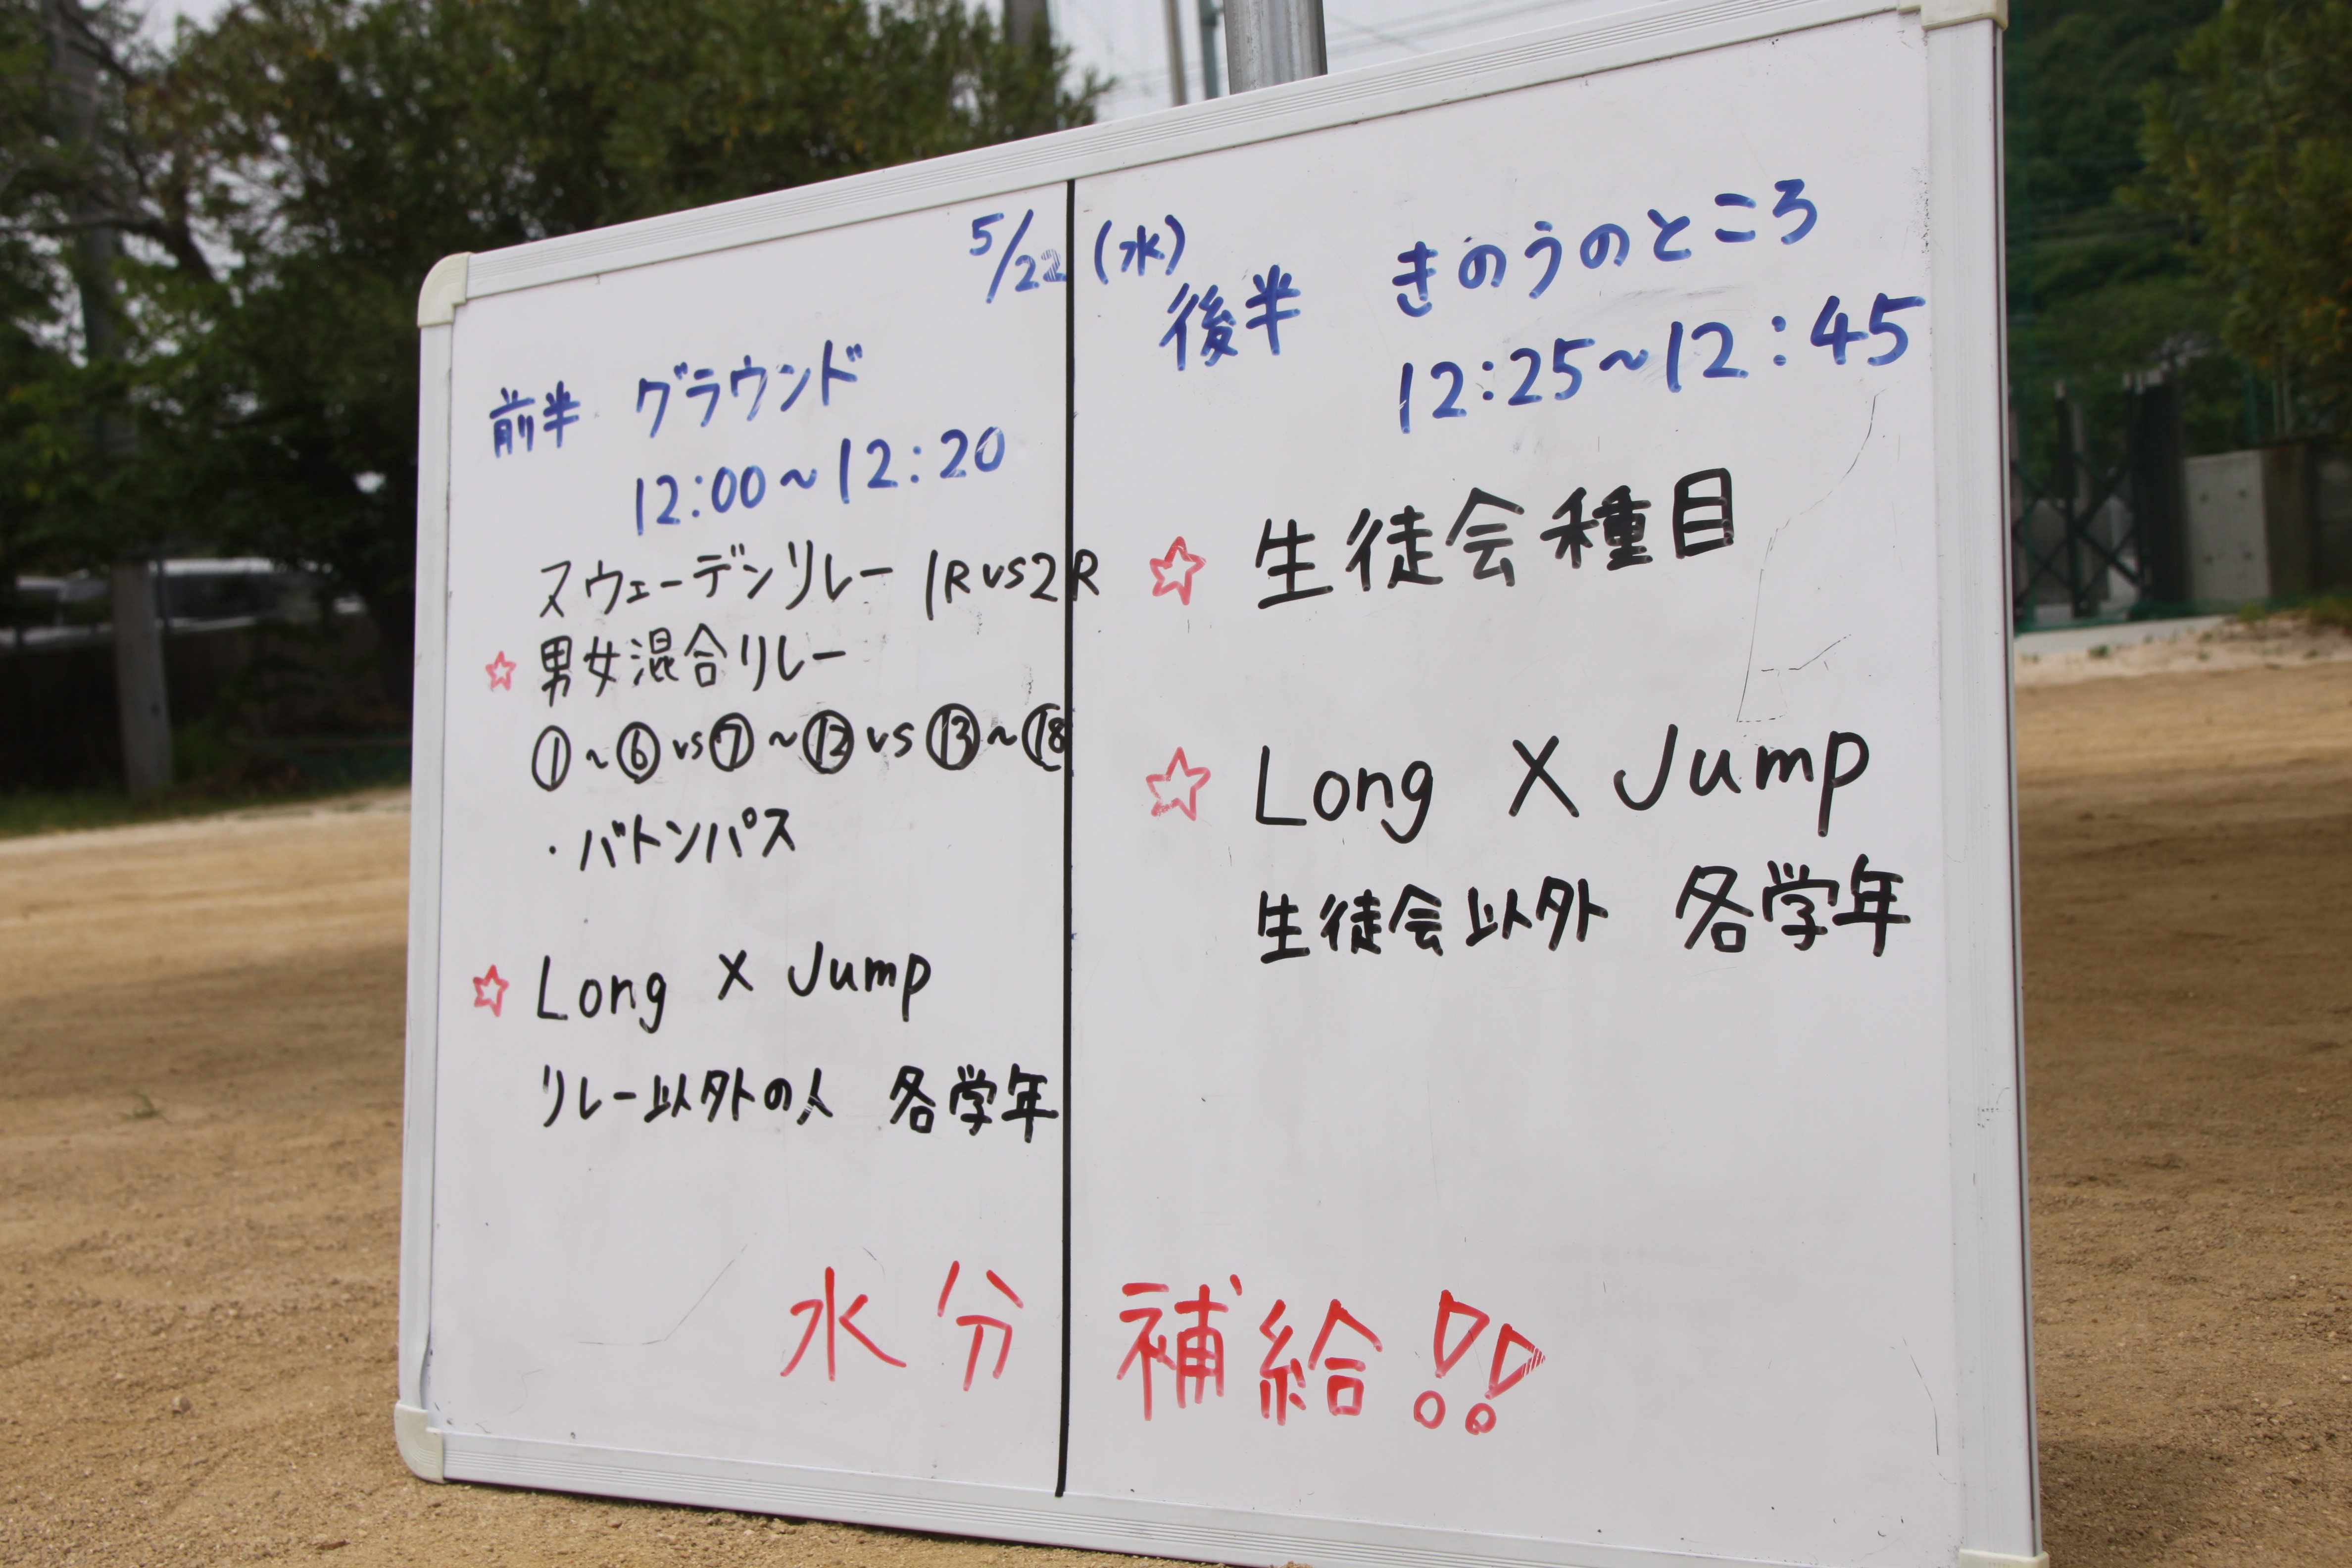 5/22 (水)
前半 グラウンド
12:00~12:20
スウェーデンリレー 1R vs 2R
☆ 男女混合リレー
①~⑥ vs ⑦~⑫ vs ⑬~⑱
・バトンパス
☆ Long X Jump
リレー以外の人 各学年
後半 きのうのところ
12:25~12:45
☆ 生徒会種目
☆ Long X Jump
生徒会以外 各学年
水分補給!!